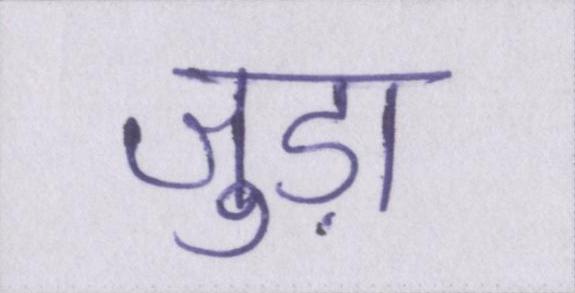 जुड़ा